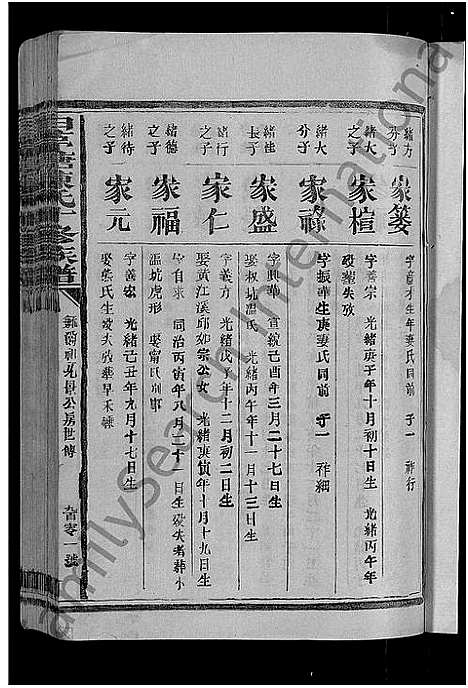 緒方
分子
家簍
生年妻氏同前 子一 祥行
緒大
之子
家楦
字善宗 光緒庚子年十月初十日生 光緒丙午年
歿塟失攷
緒大
分子
家祿
字振華生庚妻氏同前 子一 祥細
緒桂
長子
家盛
字興華 宣統己酉年三月二十七日生
娶 坑溫氏 光緒丙午年十一月十三日生
緒行
之子
家仁
字義方 光緒戊子年十二月初二日生
娶黃江溪邱如宗公女 光緒庚寅年十月十九日生
緒德
之子
家福
字自來 同治丙寅年八月二十一日生歿失考葬小
溫坑虎形 娶甯氏別鄉
緒待
之子
家元
字義宏 光緒己丑年九月十七日生
娶 氏生歿失攷葬早禾
氏十修族譜
公房世傳
九百零一號
Familysearch International